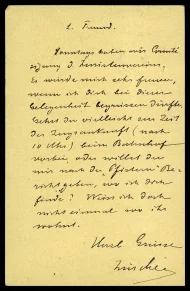 L. Freund.
Sonntags haben wir Comité
sitzung d. Juristenvereins.
Es würde mich sehr freuen,
wenn ich dich bei dieser
Gelegenheit begrüssen dürfte.
Gehst du vielleicht zur Zeit
der Zugsankunft (nach
10 Uhr) beim Bahnhof
vorbei, oder willst du
mir nach der "Pfistern" Be-
richt geben, wo ich dich
finde? Weiss ich doch
nicht einmal wo ihr
wohnt.
Herzl. Grüsse